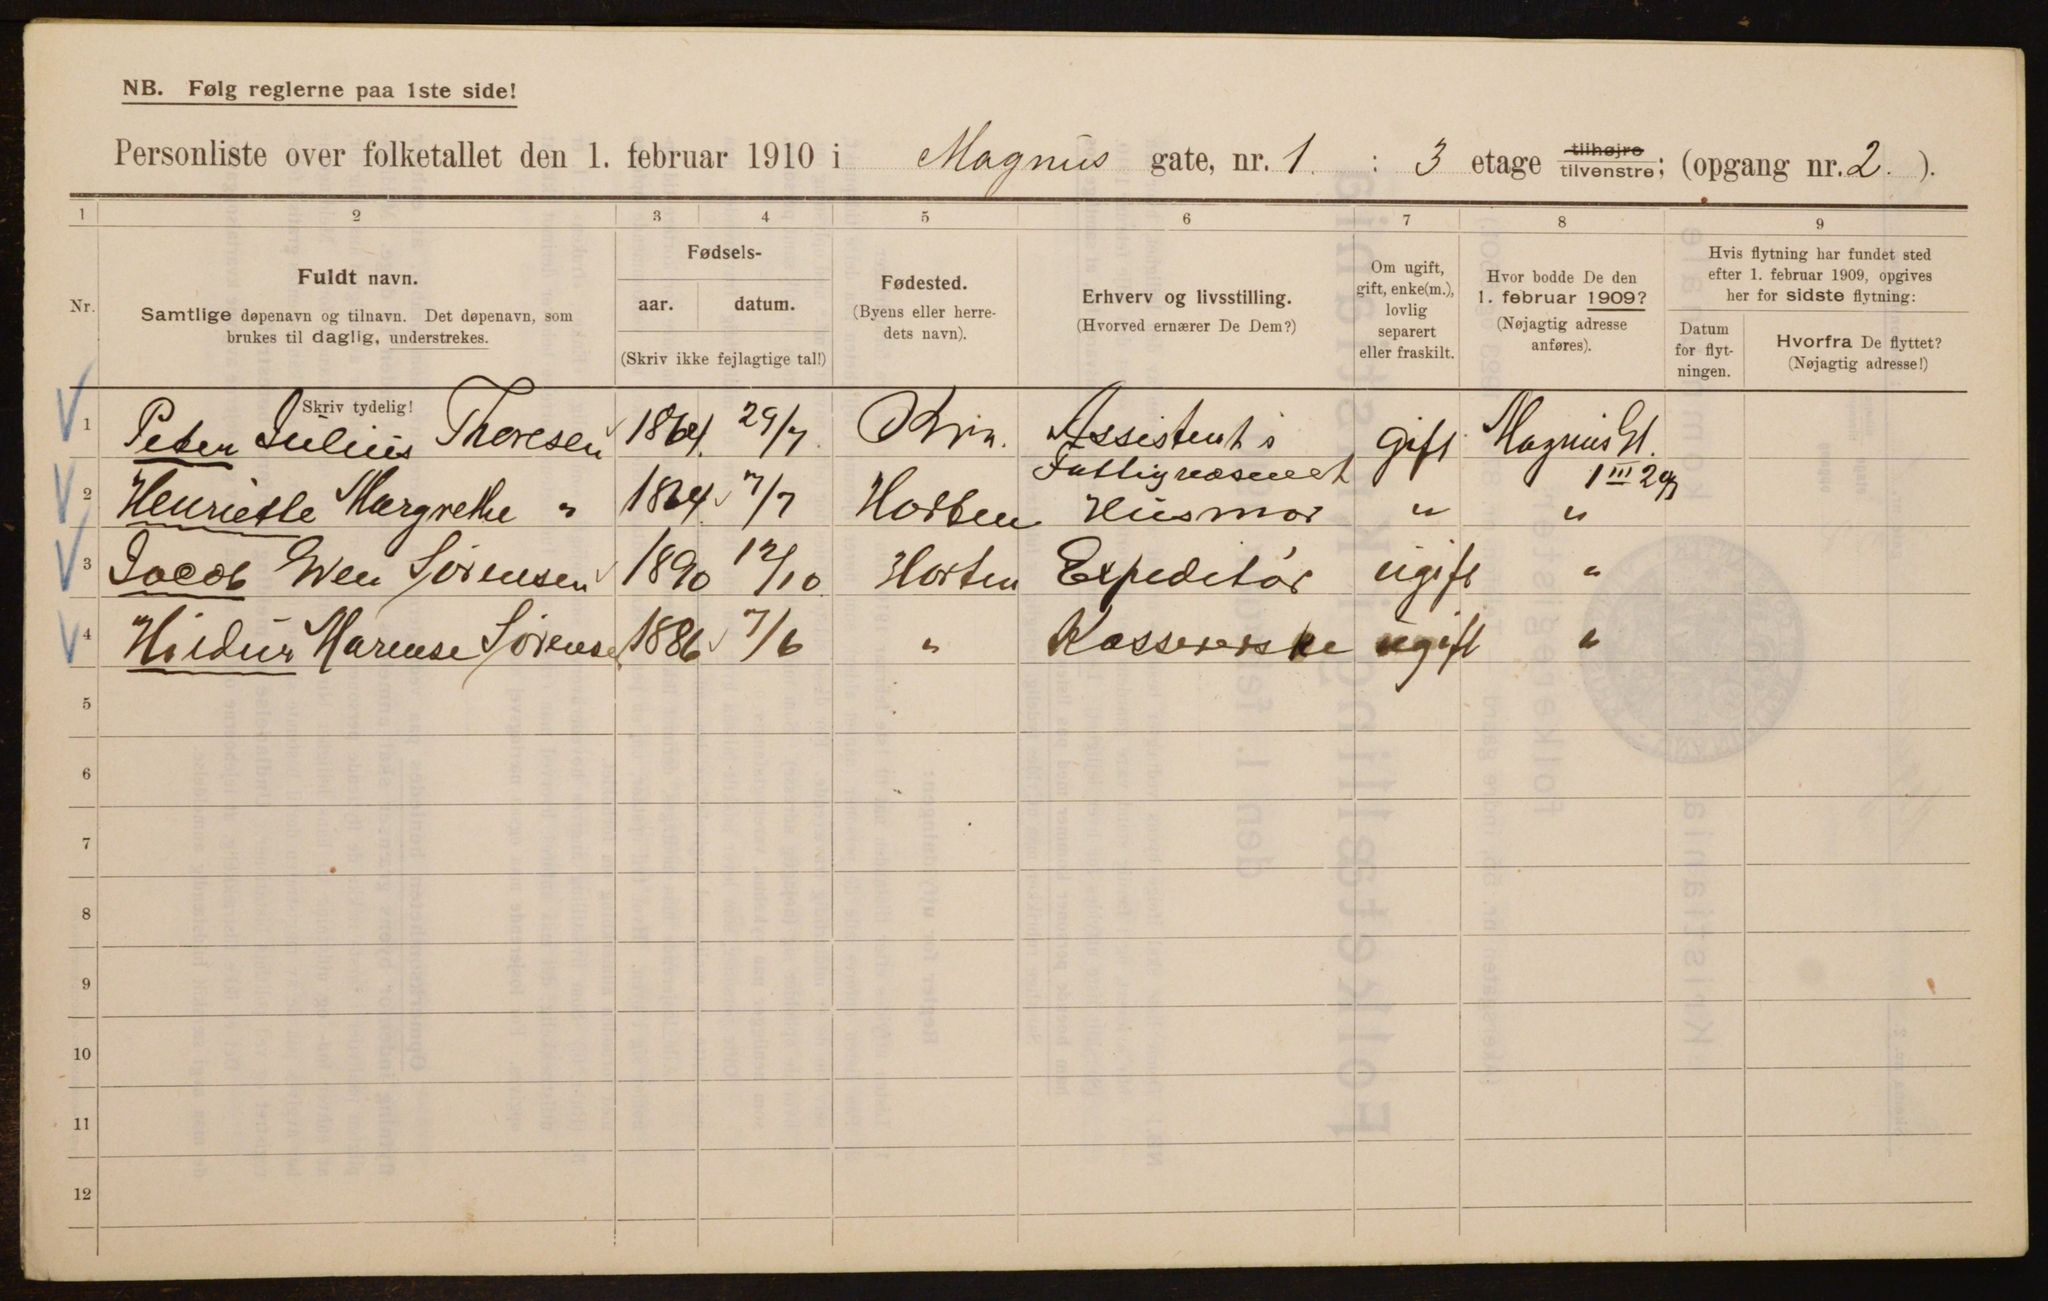 NB. Følg reglerne paa 1ste side!
Personliste over folketallet den 1. februar 1910 i Magnus gate, nr. 1 : 3 etage tilhøjre tilvenstre; (opgang nr. 2. ).
1 2 3 4 5 6 7 8 9
Nr.
Fuldt navn.
Samtlige døpenavn og tilnavn. Det døpenavn, som
brukes til daglig, understrekes.
Fødsels-
aar. datum.
(Skriv ikke fejlagtige tal!)
Fødested.
(Byens eller herre-
dets navn).
Erhverv og livsstilling.
(Hvorved ernærer De Dem?)
Om ugift,
gift, enke(m.),
lovlig
separert
eller fraskilt.
Hvor bodde De den
1. februar 1909?
(Nøjagtig adresse
anføres).
Hvis flytning har fundet sted
efter 1. februar 1909, opgives
her for sidste flytning:
Datum
for flyt-
ningen.
Hvorfra De flyttet?
(Nøjagtig adresse!)
Skriv tydelig!
1 Peter Julius Thoresen 1864. 29/7. Assistent i gift Magnus Gt.
Fattigvæsenet 1 III 2 og
2 Henriette Margrethe " 1864 7/7 Horten Husmor " "
3 Jacob Wen Sørensen 1890 12/10 Horten Expeditør ugift "
4 Marense Sørensen 1886 7/6 " Kassererske ugift "
5
6
7
8
9
10
11
12